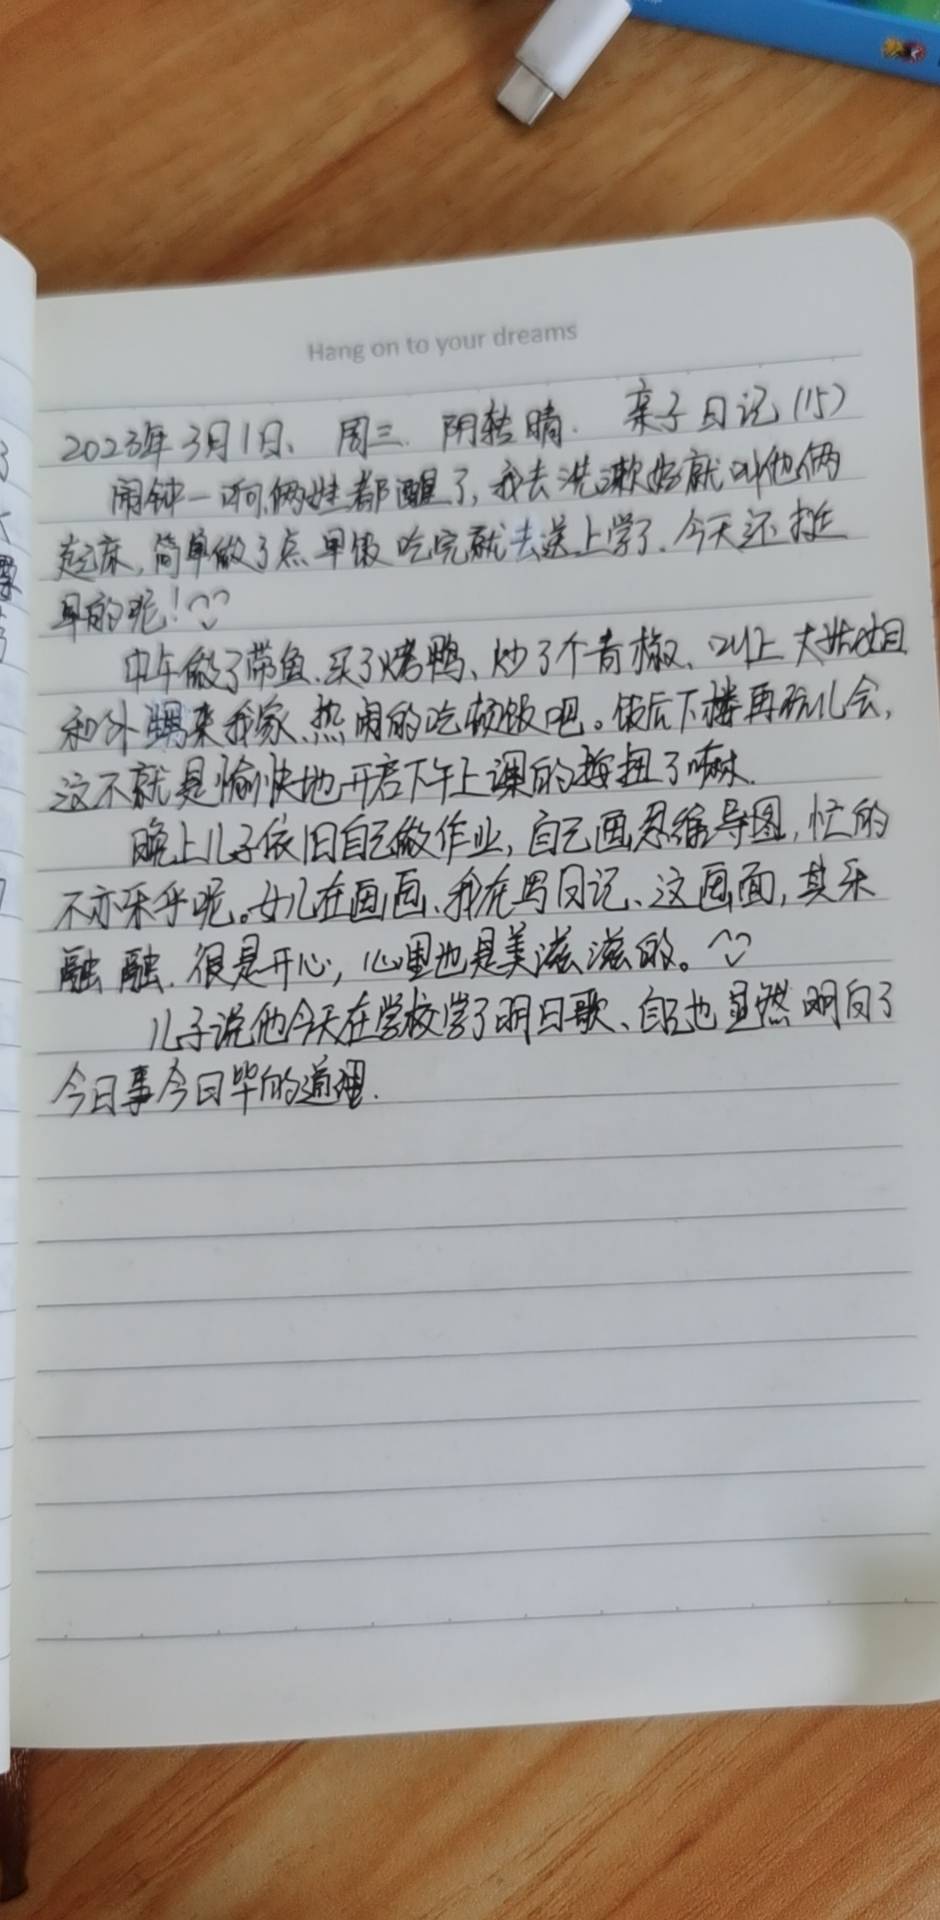 Hang on to your dreams
2023年3月1日、周三. 阴转晴. 亲子日记(15)
闹钟一响俩娃都醒了,我去洗漱好就叫他俩
起床,简单做了点早饭吃完就去送上学了.今天还挺
早的呢!
中午做了带鱼、买了烤鸭、炒了个青椒、叫上大姑姐
和外甥来我家、热闹的吃顿饭吧。饭后下楼再玩儿会,
这不就是愉快地开启下午上课的按扭了嘛.
晚上儿子依旧自己做作业,自己画思维导图,忙的
不亦乐乎呢。女儿在画画、我在写日记、这画面,其乐
融融.很是开心,心里也是美滋滋的。
儿子说他今天在学校学了明日歌、自己也显然明白了
今日事今日毕的道理.